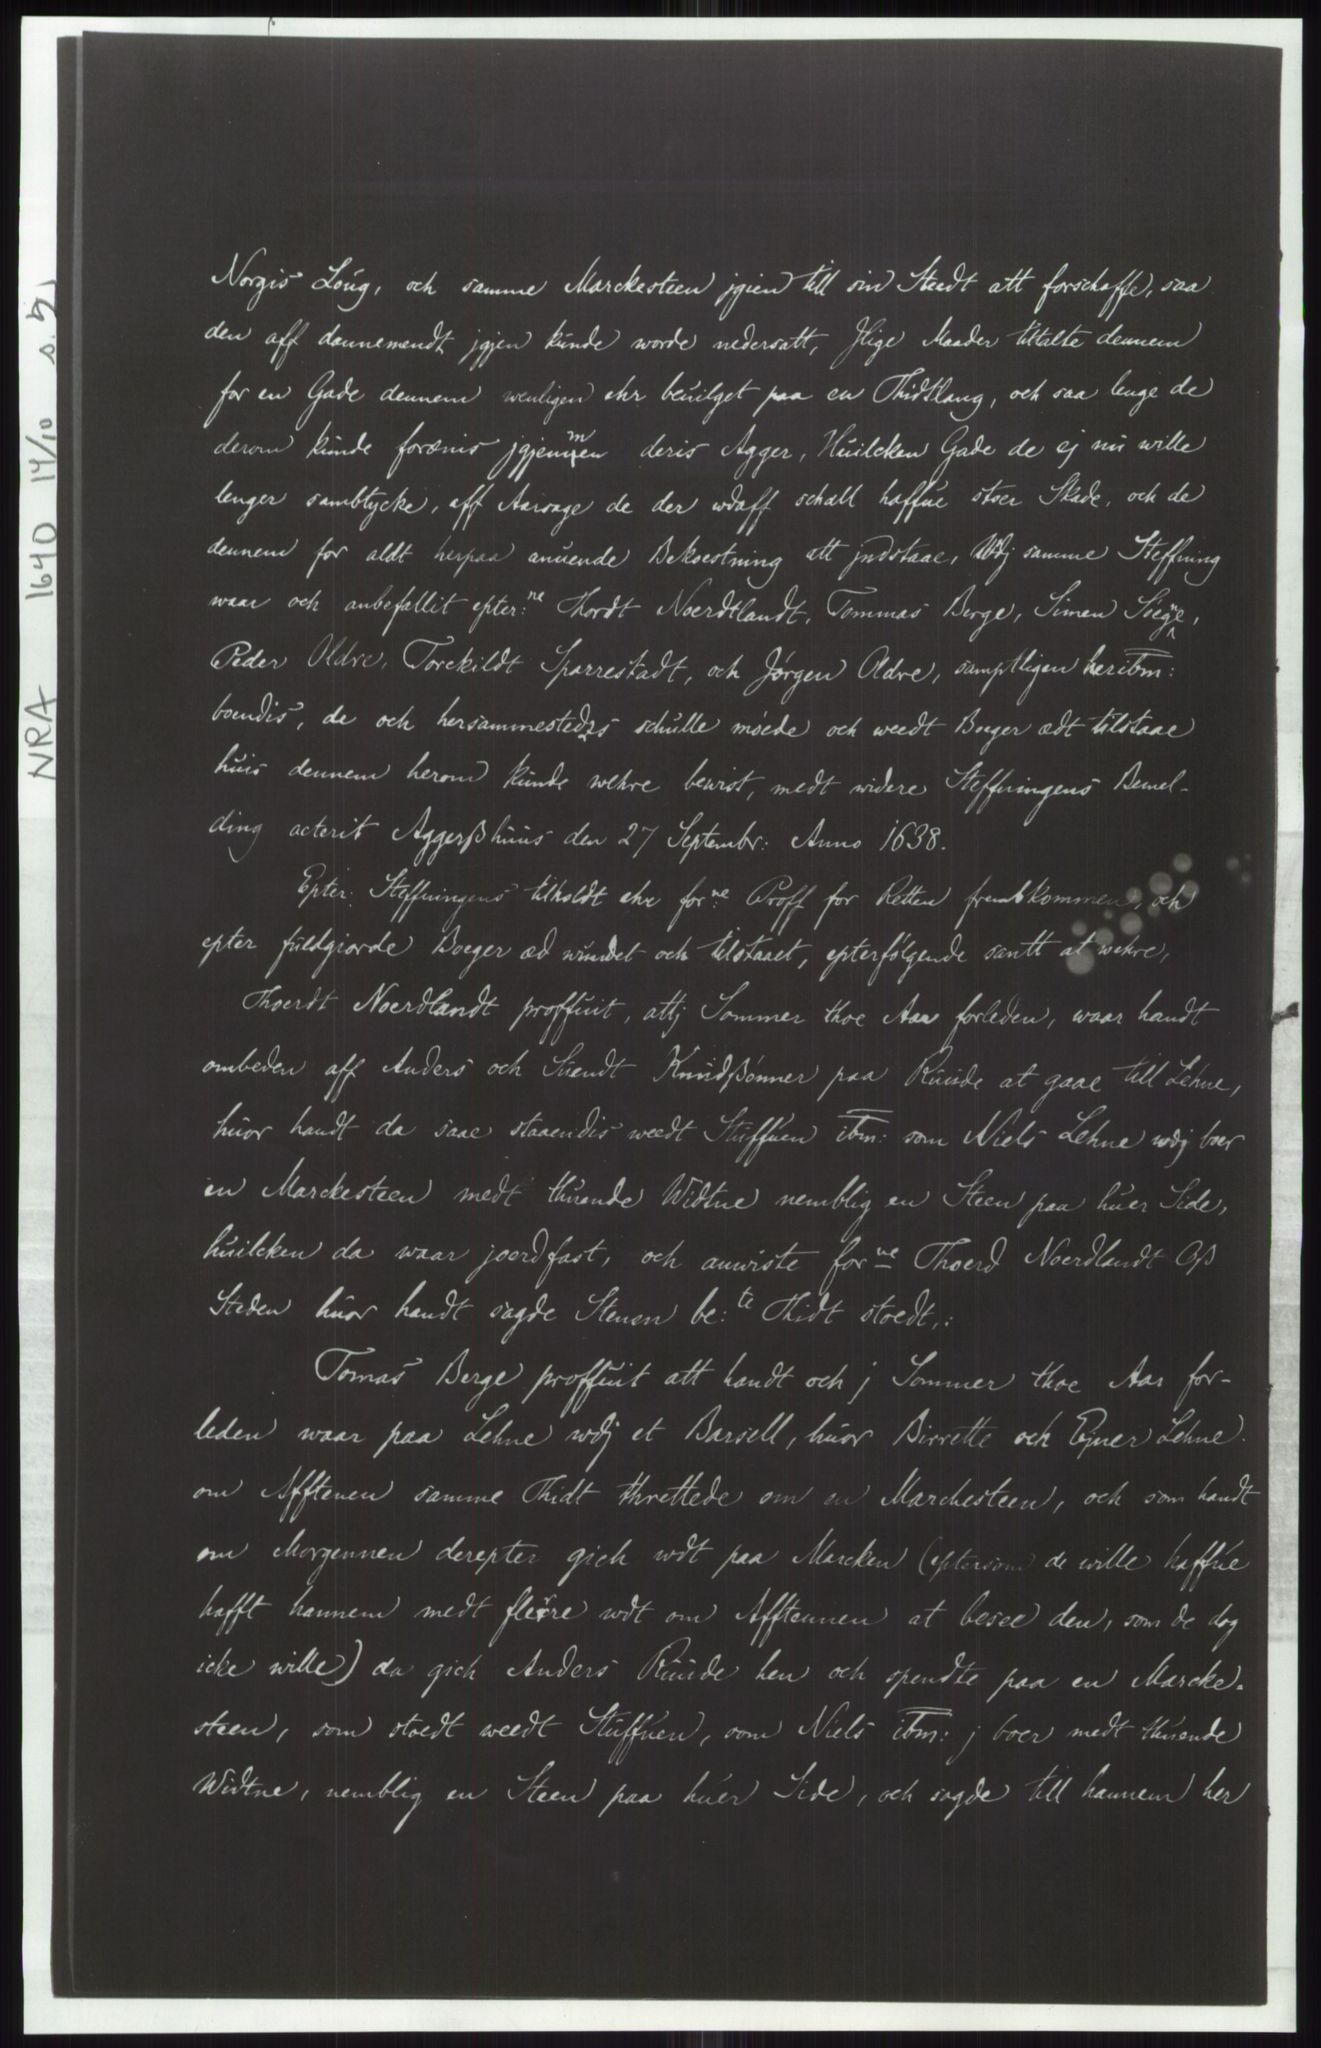 NRA 1640 14/10 s. 5
Norgis Loug, och samme Marckesteen jgien till sin Stedt att forschaffe, saa
den aff dannemendt jgjen kunde worde nedersatt, Jlige Maader tiltalte dennem
for en Gade dennem wenligen ehr beuilget paa en Thidtlang, och saa lenge de
derom kunde forænis jgjenmen deris Agger, Huilcken Gade de ej nu wille
lenger sambtycke, aff Aarsage de der wdaff schall haffue stoer Skade, och de
dennem for aldt herpaa anuende Bekoestning att jndstaae, Wdj samme Steffning
waar och anbefallit epter:ne Thordt Noerdtlandt, Tommas Berge, Simen
Peder Oldre, Torckildt Sparrestadt, och Jørgen Oldre, samptligen her ibm:
boendis, de och hersammesteds schulle møede och weedt Boger ædt tilstaae
huis dennem herom kunde wehre bewist, medt widere Steffningens Bemel-
ding acterit Aggerßhuus den 27 Septembr: Anno 1638.
Epter: Steffningens tilholdt ehr for:ne Proff for Retten frembkommen, och
epter fuldgiorde Boeger æd wundet och tilstaaet, epterfølgende santt at wehre,
Thoerdt Noerdlandt proffuit, attj Sommer thoe Aar forleden, waar handt
ombeden aff Anders och Suendt Knudßønner paa Ruude at gaae till Lehne,
huor handt da saae staaendis weedt Stuffuen ibm: som Niels Lehne wdj boer
en Marckesteen medt thuende Widtne nemblig en Steen paa huer Side,
huilcken da waar joerdfast, och anwiste for:ne Thoerd Noerdlandt Oß
Steden huor handt sagde Stenen be:te Thidt stoedt,:
Tomas Berge proffuit att handt och j Sommer thoe Aar for-
leden waar paa Lehne wdj et Barsell, huor Birrette och Ejner Lehne
om Afftenen samme Thidt threttede om en Marchesteen, och som handt
om Morgennen derepter gich wdt paa Marcken (eptersom de wille haffue
hafft hannem medt fleere wdt om Afftennen at besee den, som de dog
icke wille) da gich Anders Ruude hen och spendte paa en Marcke-
steen, som stoedt weedt Stuffuen, som Niels ibm: j boer medt thuende
Widtne, nemblig en Steen paa huer Side, och sagde till hannem her